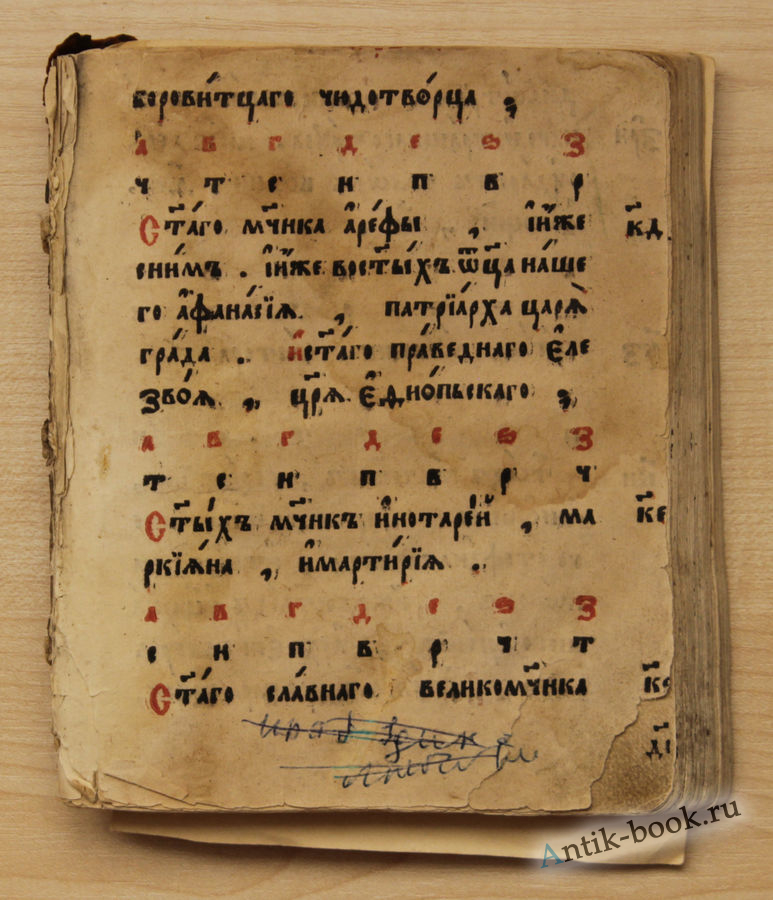 боровитцаго чюдотво́рца ,
а в г д е ѕ з
ч т с н п в р
Ст҃а́го мч҃нка а҆ре́фы , и҆и́же к҃д
сни́мъ . и҆и́же во ст҃ы́хъ ѿц҃а на́ше
го а҆фана́сїѧ . , патрїа́рха царѧ̀
гра́да . и҆ст҃а́го пра́веднаго є҆ле
звоѧ , цр҃ѧ є҆ѳїо́пьскаго ,
а в г д е ѕ з
т с н п в р ч
Ст҃ы́хъ мч҃нкъ и҆нотаре́й , ма к҃е
ркїѧ́на , и҆марти́рїѧ .
а в г д е ѕ з
с н п в р ч т
Ст҃а́го сла́внаго великомч҃нка
Antik-book.ru